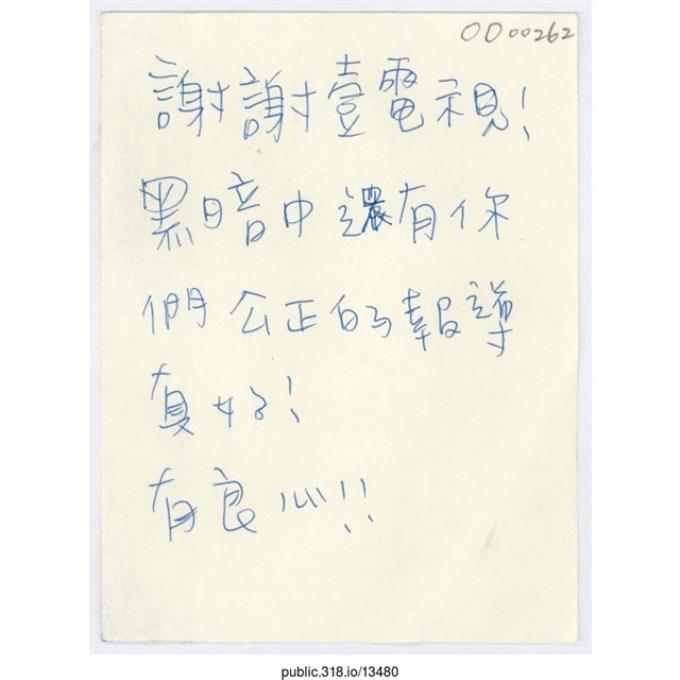 OD00262
謝謝壹電視!
黑暗中還有你
們公正的報導
真好!
有良心!!
public.318.io/13480